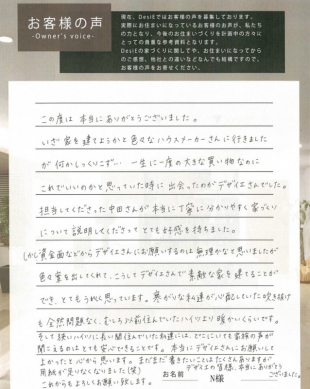 お客様の声
-Owner's voice-
現在、DesiEではお客様の声を募集しております。
実際にお住まいになっているお客様のお声が、私たち
の力となり、今後のお住まいづくりを計画中の方々に
とっての貴重な参考資料となります。
DesiEの家づくりに関してや、お住まいになってから
のご感想、他社との違いなどなんでも結構ですので、
お客様の声をお寄せください。
この度は本当にありがとうございました。
いざ家を建てようかと色々なハウスメーカーさんに行きました
が何かしっくりこず… 一生に一度の大きな買い物なのに
これでいいのかと思っていた時に出会ったのがデザイエさんでした。
担当してくださった中田さんが本当に丁寧に分かりやすく家づくり
について説明してくださって とても好感を持ちました。
しかし資金面などからデザイエさんにお願いするのは無理かなと思いましたが
色々案を出してくれて、こうしてデザイエさんで素敵な家を建てることが
でき、とてもうれしく思っています。寒がりな私達が心配していた吹き抜け
も全然問題なく、むしろ以前住んでいたハイツより暖かいくらいです。
そして狭いハイツに長い間住んでいた私達には、どこにいても家族の声が
聞こえるのはとても安心できることです。本当にデザイエさんにお願いして
よかったと心から思います。まだまだ書きたいことはたくさんありますが
用紙が足りなくなりました(笑) デザイエの皆様、本当にありがとう
ございました。
これからもよろしくお願い致します。
お名前 N様